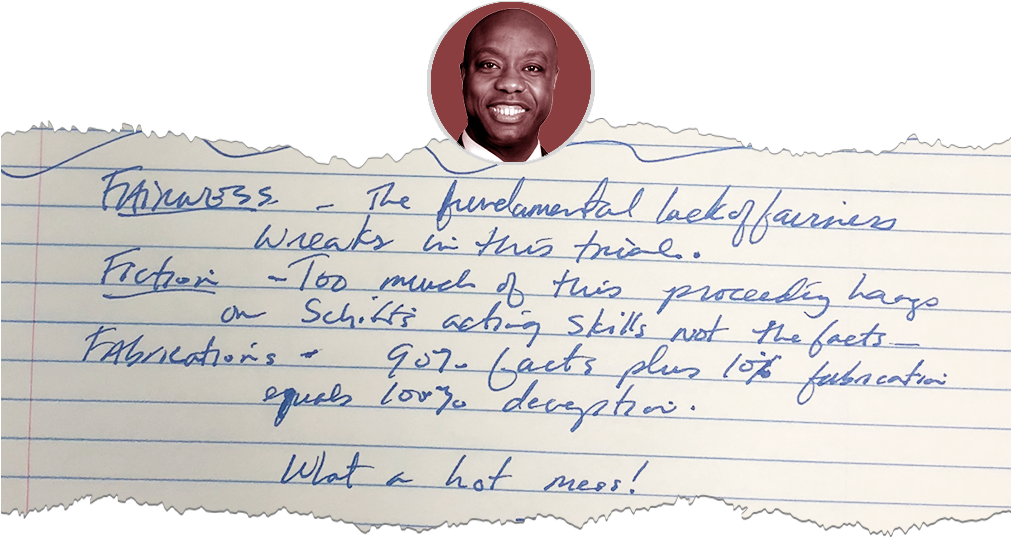 FAirness - The fundamental lack of fairness
wreaks in this trial.
Fiction - Too much of this proceeding hangs
on Schiff's acting skills not the facts -
FAbrications - 90% facts plus 10% fabrication
equals 100% deception.
What a hot mess!